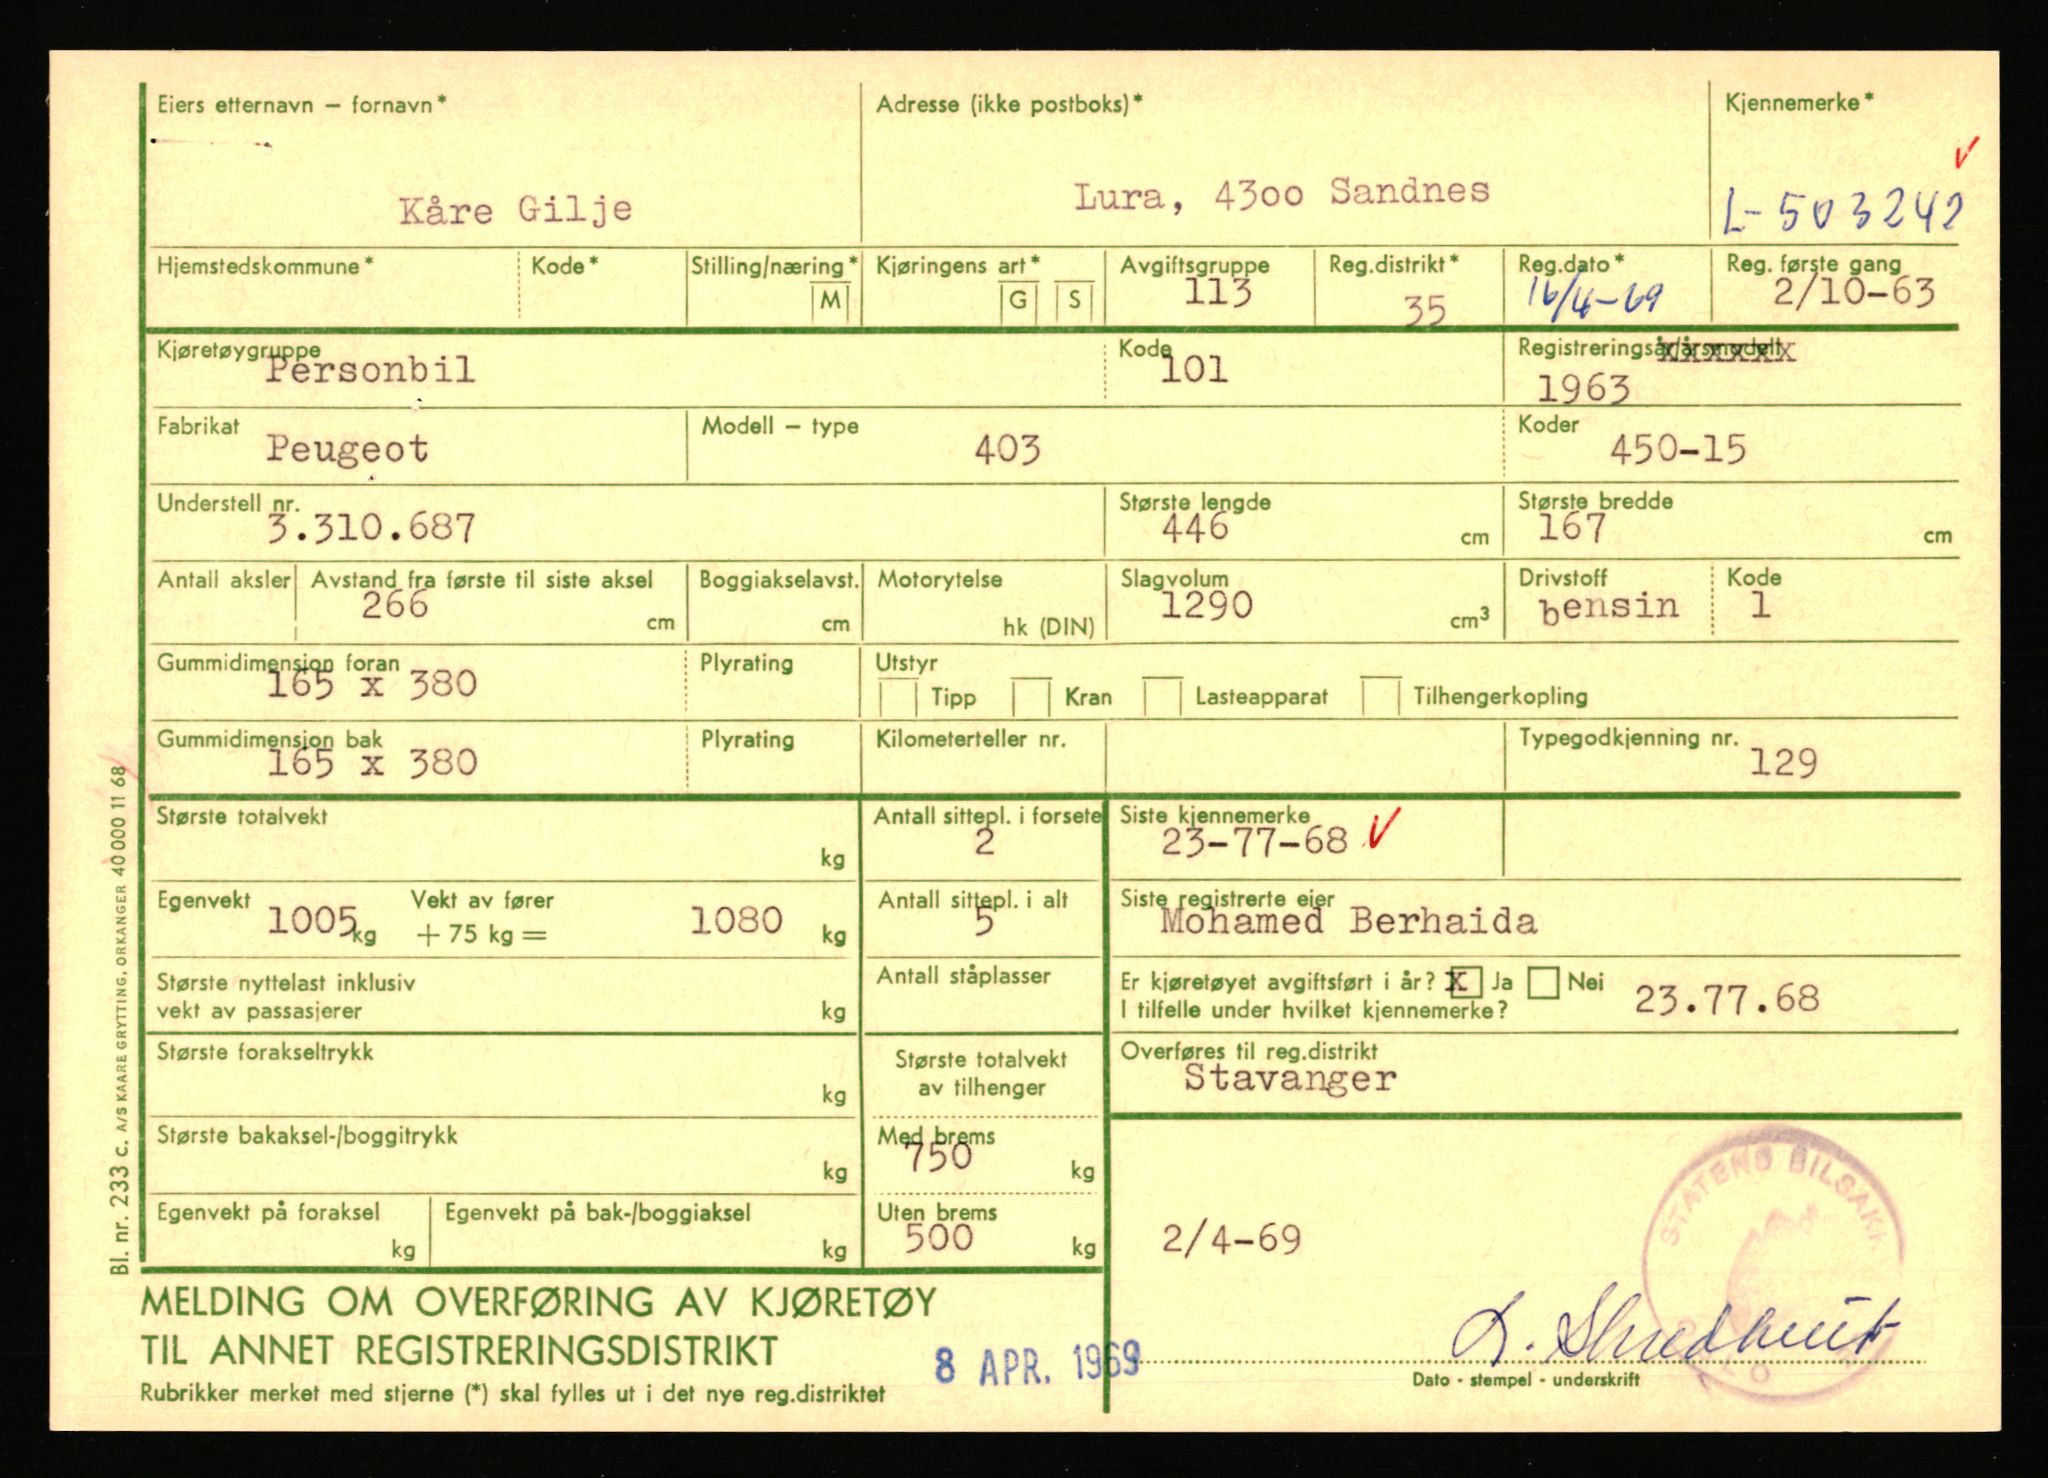 Eiers etternavn – fornavn*
Adresse (ikke postboks)*
Kjennemerke*
Kåre Gilje
Lura, 4300 Sandnes
L-503242
Hjemstedskommune*
Kode*
Stilling/næring*
M
Kjøringens art*
G
S
Avgiftsgruppe
113
Reg.distrikt*
35
Reg.dato*
16/4-69
Reg. første gang
2/10-63
Kjøretøygruppe
Personbil
Kode
101
Registreringsår/årsmodell
1963
Fabrikat
Peugeot
Modell – type
403
Koder
450-15
Understell nr.
3.310.687
Største lengde
446 cm
Største bredde
167 cm
Antall aksler
Avstand fra første til siste aksel
266 cm
Boggiakselavst.
cm
Motorytelse
hk (DIN)
Slagvolum
1290 cm³
Drivstoff
bensin
Kode
1
Gummidimension foran
165 x 380
Plyrating
Utstyr
Tipp
Kran
Lasteapparat
Tilhengerkopling
Gummidimension bak
165 x 380
Plyrating
Kilometerteller nr.
Typegodkjenning nr.
129
Største totalvekt
kg
Antall sittepl. i forsete
2
Siste kjennemerke
23-77-68
Egenvekt
1005 kg
Vekt av fører
+ 75 kg =
1080 kg
Antall sittepl. i alt
5
Siste registrerte eier
Mohamed Berhaida
Største nyttelast inklusiv
vekt av passasjerer
kg
Antall ståplasser
Er kjøretøyet avgiftsført i år? X Ja Nei
I tilfelle under hvilket kjennemerke?
23.77.68
Største forakseltrykk
kg
Største totalvekt
av tilhenger
Overføres til reg.distrikt
Stavanger
Største bakaksel-/boggitrykk
kg
Med brems
750 kg
Egenvekt på foraksel
kg
Egenvekt på bak-/boggiaksel
kg
Uten brems
500 kg
2/4-69
STATENS BILSAK
MELDING OM OVERFØRING AV KJØRETØY
TIL ANNET REGISTRERINGSDISTRIKT
8 APR. 1969
Dato - stempel - underskrift
Rubrikker merket med stjerne (*) skal fylles ut i det nye reg.distriktet
Bl. nr. 233 c. A/S KAARE GRYTTING, ORKANGER 40 000 11 68